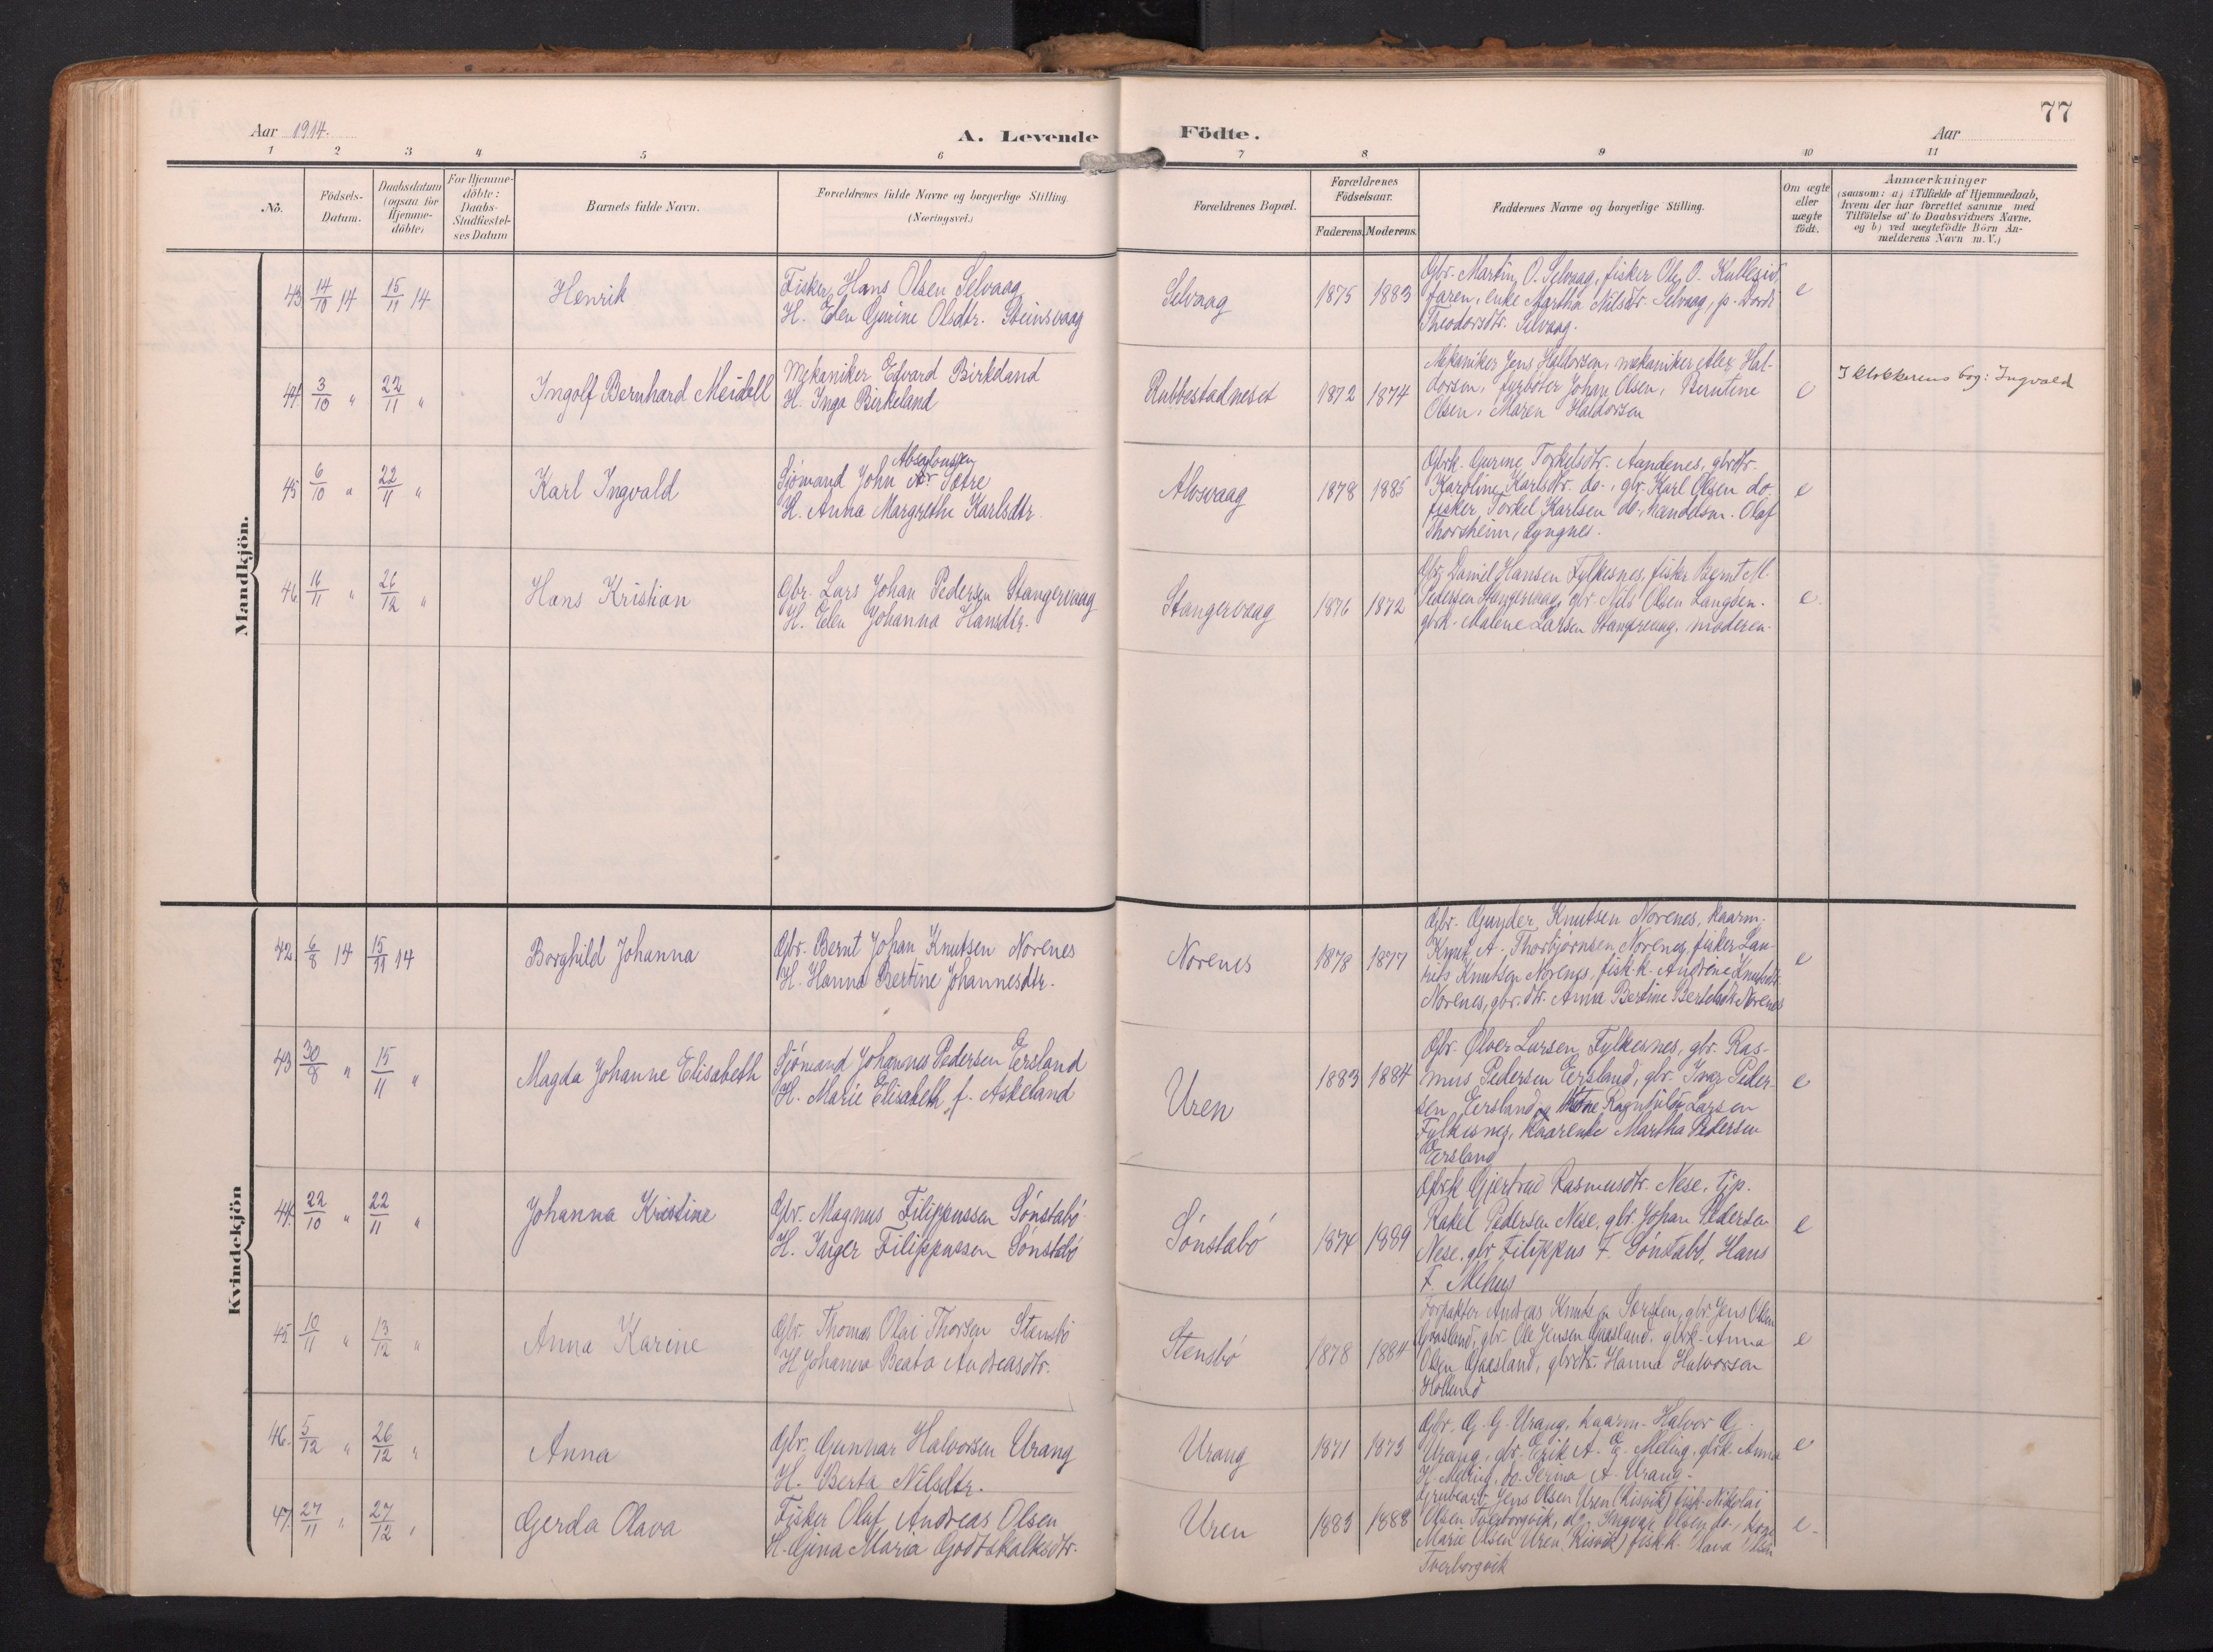 77
Aar 1914.
A. Levende Födte.
Aar
1 2 3 4 5 6 7 8 9 10 11
No.
Födsels-Datum.
Daabsdatum (ogsaa for Hjemme-döbte)
For Hjemme-döbte: Daabs-Stadfæstel-ses Datum
Barnets fulde Navn.
Forældrenes fulde Navne og borgerlige Stilling (Næringsvei.)
Forældrenes Bopæl.
Forældrenes Födselsaar.
Faderens. Moderens.
Faddernes Navne og borgerlige Stilling.
Om ægte eller uægte födt.
Anmærkninger
(saasom: a) i Tilfælde af Hjemmedaab,
hvem der har forrettet samme med
Tilföielse af to Daabsvidners Navne.
og b) ved uægtefödte Börn An-
melderens Navn m. V.)
Mandkjön.
43 14/10 14 15/11 14 Henrik
Fisker Hans Olsen Selvaag
H. Elen Gurine Olsdtr. Steinsvaag
Selvaag 1875 1883
Gbr. Martin O. Selvaag, fisker Ole O. Kulleseid,
faren, enke Martha Nilsdtr. Selvaag, p. Dorde
Theodorsdtr. Selvaag.
e
44 3/10 " 22/11 " Ingolf Bernhard Meidell
Mekaniker Edvard Birkeland
H. Inga Birkeland
Rubbestadneset 1872 1874
Mekaniker Jens Haldorsen, mekaniker Alex Hal-
dorsen, fyrbøter Johan Olsen, Berntine
Olsen, Maren Haldorsen
e
I klokkerens bog: Ingvald
45 6/10 " 22/11 " Karl Ingvald
Absalonsen
Sjómand John Sætre
H. Anna Margrethe Karlsdtr.
Alvsvaag 1878 1885
Gbrk. Gurine Torkelsdtr. Aandenes, gbrdtr.
Karoline Karlsdtr. do., gbr. Karl Olsen do.
fisker Torkel Karlsen do., handelsm. Olaf
Thorsheim, Lyngnes.
e
46 16/11 " 26/12 " Hans Kristian
Gbr. Lars Johan Pedersen Stangervaag
H. Elen Johanna Hansdtr.
Stangervaag 1876 1872
Gbr. Daniel Hansen Fylkesnes, fisker Bernt M.
Pedersen Stangervaag, gbr. Nils Olsen Langsen.
gbrk. Malene Larsen Stangervaag. moderen.
e.
Kvindekjön
42 6/8 14 15/11 14 Borghild Johanna
Gbr. Bernt Johan Knutsen Norenes
H. Hanna Bertine Johannesdtr.
Norenes 1878 1877
Gbr. Gunder Knutsen Norenes, kaarm.
Knut A. Thorbjørnsen Norenes, fisker Lau-
rits Knutsen Norenes, fisk.k. Andrine Knutsdtr.
Norenes, gbr. dtr. Anna Bertine Bertelsdtr. Norenes
e
43 30/8 " 15/11 " Magda Johanne Elisabeth
Sjómand Johannes Pedersen Eersland
H. Marie Elisabeth f. Askeland
Uren 1883 1884
Gbr. Ølver Larsen Fylkesnes, gbr. Ras-
mus Pedersen Eersland, gbr. Ivar Peder-
sen Eersland, Ragnhild Larsen
Fylkesnes, kaarenke Martha Pedersen
Eersland
e
44. 22/10 " 22/11 " Johanna Kristine
Gbr. Magnus Filippussen Sónstabó
H. Inger Filippussen Sónstabó
Sónstabó 1874 1889
Gbrk Gjertrud Rasmusdtr. Nese, tjp.
Rakel Pedersen Nese, gbr. Johan Pedersen
Nese, gbr Filippus F. Sónstabó, Hans
F. Mehus
e
45 10/11 " 13/12 " Anna Karine
Gbr. Thomas Olai Thorsen Stensbó
H Johanna Beata Andreasdtr.
Stensbó 1878 1884
Forpakter Andreas Knutsen Sørsten, gbr Jens Olsen
Gaasland, gbr. Ole Jensen Gaasland, gbrk. Anna
Olsen Gaasland, gbrdtr. Hanna Halvorsen
Holland
e
46. 5/12 " 26/12 " Anna
Gbr. Gunnar Halvorsen Urang
H. Berta Nilsdtr.
Urang 1871 1873
Gbr. G. G. Urang, kaarm. Halvor G.
Urang, gbr. Erik A. E. Meling, gbrk. Anna
H. Meling, do. Serina A. Urang.
e
47. 27/11 " 27/12 " Gerda Olava
Fisker Olaf Andreas Olsen
H. Gina Maria Godtskalksdtr.
Uren 1883 1888
Grubearb. Jens Olsen Uren (Risvik) fisk. Nikolai
Olsen Tverborgvik, do. Ingvar Olsen do., kone
Marie Olsen Uren, Risvik) fisk.k. Olava Olsen
Tverborgvik
e.